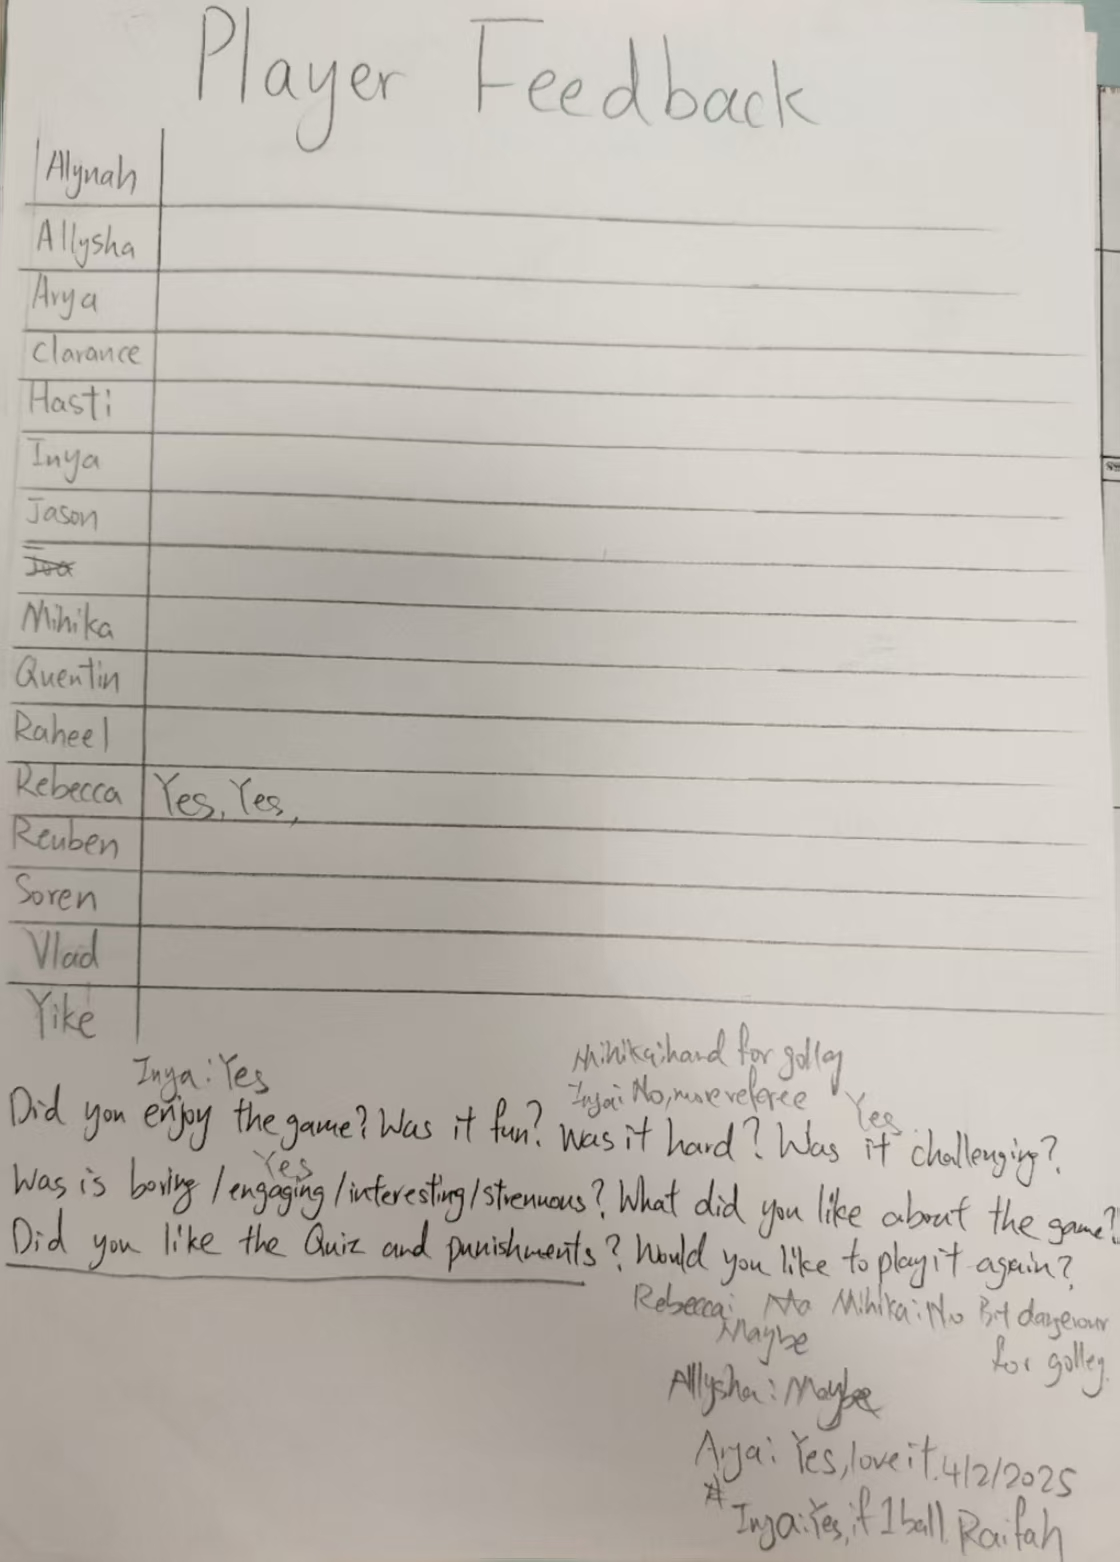 Player Feedback
Alynah
Allysha
Arya
Clarance
Hasti
Inya
Jason
Mihika
Quentin
Raheel
Rebecca Yes, Yes,
Reuben
Soren
Vlad
Yike
Mihika: hard for golley
Inya: Yes
Inya: No, more referee Yes
Did you enjoy the game? Was it fun? Was it hard? Was it challenging?
Yes
Was is boring/engaging/interesting/strenuous? What did you like about the game?
Did you like the Quiz and punishments? Would you like to play it again?
Rebecca: No Mihika: No Bit dangerour
Maybe for golley.
Allysha: Maybe
Arya: Yes, love it. 4/2/2025
Inya: Yes, if 1 ball. Raifah